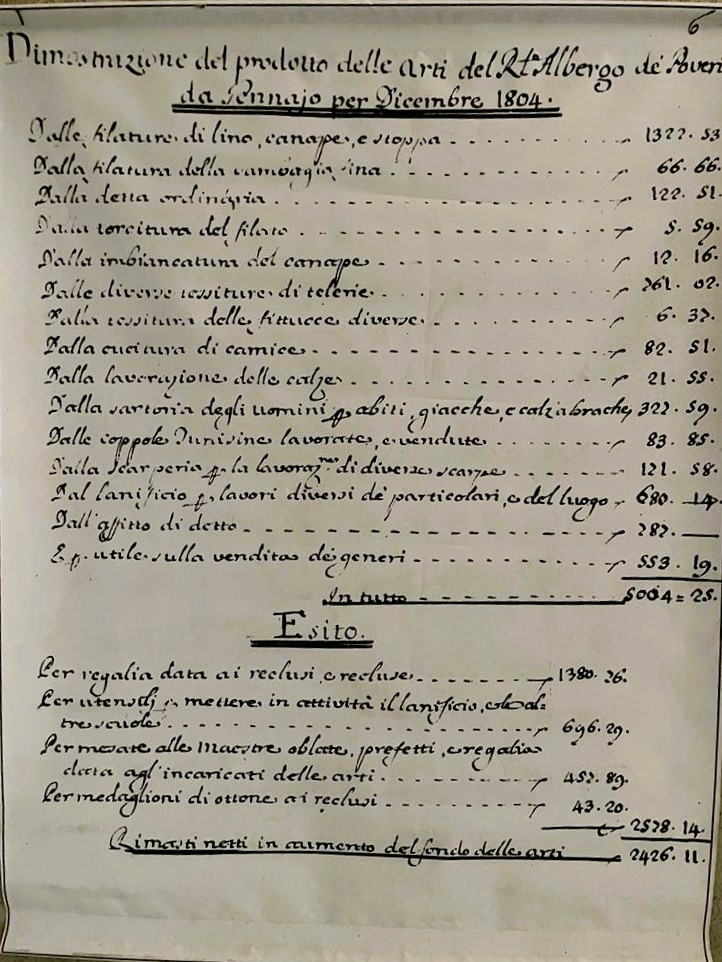 6
Dimostrazione del prodotto delle arti del Rl.e Albergo de' Poveri
da Gennajo per Dicembre 1804.
Dalle filature di lino, canape, e stoppa 1377. 53
Dalla filatura della bambagia fina 66. 66.
Dalla detta ordinaria 122. 51.
Dalla torcitura del filato 5. 59.
Dalla imbiancatura del canape 12. 16.
Dalle diverse tessiture di telerie 761. 02.
Dalla tessitura delle fittucce diverse 6. 37.
Dalla cucitura di camice 82. 51.
Dalla lavorazione delle calze 21. 55.
Dalla sartoria degli uomini p abiti, giacche, e calzabrache 322. 59.
Dalle coppole Tunisine lavorate, e vendute 83. 85.
Dalla scarperia p la lavoraz.ne di diverse scarpe 121. 58.
Dal lanificio p lavori diversi de' particolari, e del luogo 680. 14.
Dall'affitto di detto 787. —
E p. utile sulla vendita de' generi 553. 19.
In tutto 5004 = 25.
Esito.
Per regalia data ai reclusi, e recluse 1380. 76.
Per utensilj p mettere in attività il lanificio, e le al-
tre scuole 696. 29.
Per mesate alle Maestre oblate, prefetti, e regalia
data agl'incaricati delle arti 457. 89.
Per medaglioni di ottone ai reclusi 43. 20.
2578. 14.
Rimasti netti in aumento del fondo delle arti 2426. 11.